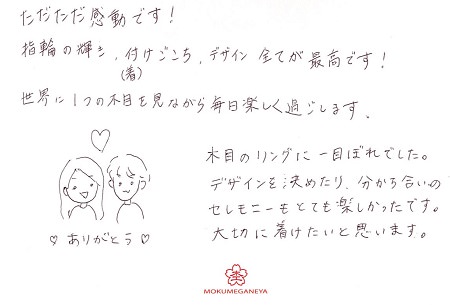 ただただ感動です!
指輪の輝き、付けごこち、デザイン 全てが 最高です!
(着)
世界に1つの木目を見ながら毎日楽しく過ごします。
木目のリングに一目ぼれでした。
デザインを決めたり、分かち合いの
セレモニーもとても楽しかったです。
大切に着けたいと思います。
♡ ありがとう ♡
MOKUMEGANEYA